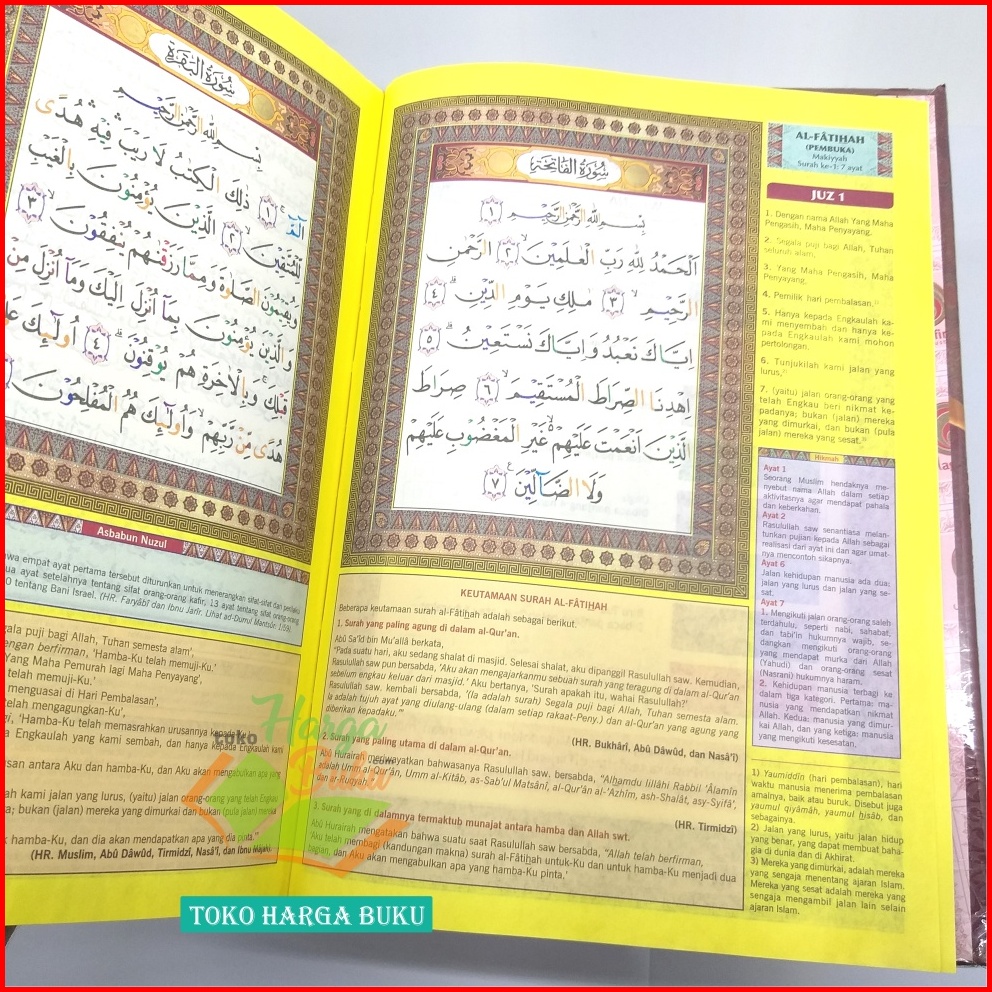 سُورَةُ الْفَاتِحَةِ
بِسْمِ اللّٰهِ الرَّحْمٰنِ الرَّحِيْمِ ﴿١﴾
اَلْحَمْدُ لِلّٰهِ رَبِّ الْعٰلَمِيْنَ ﴿٢﴾ الرَّحْمٰنِ
الرَّحِيْمِ ﴿٣﴾ مٰلِكِ يَوْمِ الدِّيْنِ ﴿٤﴾
اِيَّاكَ نَعْبُدُ وَاِيَّاكَ نَسْتَعِيْنُ ﴿٥﴾
اِهْدِنَا الصِّرَاطَ الْمُسْتَقِيْمَ ﴿٦﴾ صِرَاطَ
الَّذِيْنَ اَنْعَمْتَ عَلَيْهِمْ غَيْرِ الْمَغْضُوْبِ عَلَيْهِمْ
وَلَا الضَّآلِّيْنَ ﴿٧﴾
AL-FÂTIḪAH
(PEMBUKA)
Makiyyah
Surah ke-1: 7 ayat
JUZ 1
1. Dengan nama Allah Yang Maha
Pengasih, Maha Penyayang.
2. Segala puji bagi Allah, Tuhan
seluruh alam,
3. Yang Maha Pengasih, Maha
Penyayang.
4. Pemilik hari pembalasan.
5. Hanya kepada Engkaulah ka-
mi menyembah dan hanya ke-
pada Engkaulah kami mohon
pertolongan.
6. Tunjukilah kami jalan yang
lurus,
7. (yaitu) jalan orang-orang yang
telah Engkau beri nikmat ke-
padanya; bukan (jalan) mereka
yang dimurkai, dan bukan (pula
jalan) mereka yang sesat.
Hikmah
Ayat 1
Seorang Muslim hendaknya me-
nyebut nama Allah dalam setiap
aktivitasnya agar mendapat pahala
dan keberkahan.
Ayat 2
Rasulullah saw senantiasa melan-
tunkan pujian kepada Allah sebagai
realisasi dari ayat ini dan agar umat-
nya mencontoh sikapnya.
Ayat 6
Jalan kehidupan manusia ada dua;
jalan yang lurus dan jalan yang se-
sat.
Ayat 7
1. Mengikuti jalan orang-orang saleh
terdahulu, seperti nabi, sahabat,
dan tabi'in hukumnya wajib, se-
dangkan mengikuti orang-orang
yang mendapat murka dari Allah
(Yahudi) dan orang-orang sesat
(Nasrani) hukumnya haram.
2. Kehidupan manusia terbagi ke
dalam tiga kategori. Pertama: ma-
nusia yang mendapatkan nikmat
dari Allah. Kedua: manusia yang dimur-
kai Allah, dan yang ketiga: manusia
yang mengikuti kesesatan.
1) Yaumiddîn (hari pembalasan), hari
waktu manusia menerima pembalasan
amalnya, baik atau buruk. Disebut juga
yaumul qiyâmah, yaumul ḫisâb, dan
sebagainya.
2) Jalan yang lurus, yaitu jalan hidup
yang benar, yang dapat membuat baha-
gia di dunia dan di Akhirat.
3) Mereka yang dimurkai, adalah mereka
yang sengaja menentang ajaran Islam.
Mereka yang sesat adalah mereka yang
sengaja mengambil jalan lain selain
ajaran Islam.
KEUTAMAAN SURAH AL-FÂTIḪAH
Beberapa keutamaan surah al-Fâtiḫah adalah sebagai berikut.
1. Surah yang paling agung di dalam al-Qur'an.
Abû Sa'îd bin Mu'allâ berkata,
"Pada suatu hari, aku sedang shalat di masjid. Selesai shalat, aku dipanggil Rasulullah saw. Kemudian,
Rasulullah saw pun bersabda, 'Aku akan mengajarkanmu sebuah surah yang teragung di dalam al-Qur'an
sebelum engkau keluar dari masjid.' Aku bertanya, 'Surah apakah itu, wahai Rasulullah?'
Rasulullah saw. kembali bersabda, '(Ia adalah surah) Segala puji bagi Allah, Tuhan semesta alam.
adalah tujuh ayat yang diulang-ulang (dalam setiap rakaat-Peny.) dan al-Qur'an yang agung yang
diberikan kepadaku.'"
(HR. Bukhârî, Abû Dâwûd, dan Nasâ'î)
2. Surah yang paling utama di dalam al-Qur'an.
Abû Hurairah meriwayatkan bahwasanya Rasulullah saw. bersabda, "Alhamdu lillâhi Rabbil 'Âlamîn
adalah Umm al-Qur'ân, Umm al-Kitâb, as-Sab'ul Matsânî, al-Qur'ân al-'Azhîm, ash-Shalât, asy-Syifâ',
dan ar-Ruqyah."
(HR. Tirmidzî)
3. Surah yang di dalamnya termaktub munajat antara hamba dan Allah swt.
Abû Hurairah mengatakan bahwa suatu saat Rasulullah saw bersabda, "Allah telah berfirman,
'Aku telah membagi (kandungan makna) surah al-Fâtiḫah untuk-Ku dan untuk hamba-Ku menjadi dua
bagian, dan Aku akan mengabulkan apa yang hamba-Ku pinta.'
سُورَةُ الْبَقَرَةِ
بِسْمِ اللّٰهِ الرَّحْمٰنِ الرَّحِيْمِ
الٓمّٓ ﴿١﴾ ذٰلِكَ الْكِتٰبُ لَا رَيْبَ فِيْهِ هُدًى
لِّلْمُتَّقِيْنَ ﴿٢﴾ الَّذِيْنَ يُؤْمِنُوْنَ بِالْغَيْبِ
وَيُقِيْمُوْنَ الصَّلٰوةَ وَمِمَّا رَزَقْنٰهُمْ يُنْفِقُوْنَ ﴿٣﴾
وَالَّذِيْنَ يُؤْمِنُوْنَ بِمَآ اُنْزِلَ اِلَيْكَ وَمَآ اُنْزِلَ مِنْ
قَبْلِكَ وَبِالْاٰخِرَةِ هُمْ يُوْقِنُوْنَ ﴿٤﴾ اُولٰٓئِكَ عَلٰى
هُدًى مِّنْ رَّبِّهِمْ وَاُولٰٓئِكَ هُمُ الْمُفْلِحُوْنَ
Asbabun Nuzul
empat ayat pertama tersebut diturunkan untuk menerangkan sifat-sifat dan perilaku
ayat setelahnya tentang sifat orang-orang kafir, 13 ayat tentang sifat orang-orang
tentang Bani Israel. (HR. Faryâbî dan Ibnu Jarîr. Lihat ad-Durrul Mantsûr: 1/99)
puji bagi Allah, Tuhan semesta alam',
berfirman, 'Hamba-Ku telah memuji-Ku.'
Yang Maha Pemurah lagi Maha Penyayang',
telah memuji-Ku.'
menguasai di Hari Pembalasan',
telah mengagungkan-Ku',
'Hamba-Ku telah memasrahkan urusannya kepada-Ku.'
yang kami sembah, dan hanya kepada Engkaulah kami
antara Aku dan hamba-Ku, dan Aku akan mengabulkan apa yang
kami jalan yang lurus, (yaitu) jalan orang-orang yang telah Engkau
bukan (jalan) mereka yang dimurkai dan bukan (pula jalan) mereka
hamba-Ku, dan dia akan mendapatkan apa yang dia pinta."
(HR. Muslim, Abû Dâwûd, Tirmidzî, Nasâ'î, dan Ibnu Mâjah)
toko
Harga
Buku
.com
TOKO HARGA BUKU